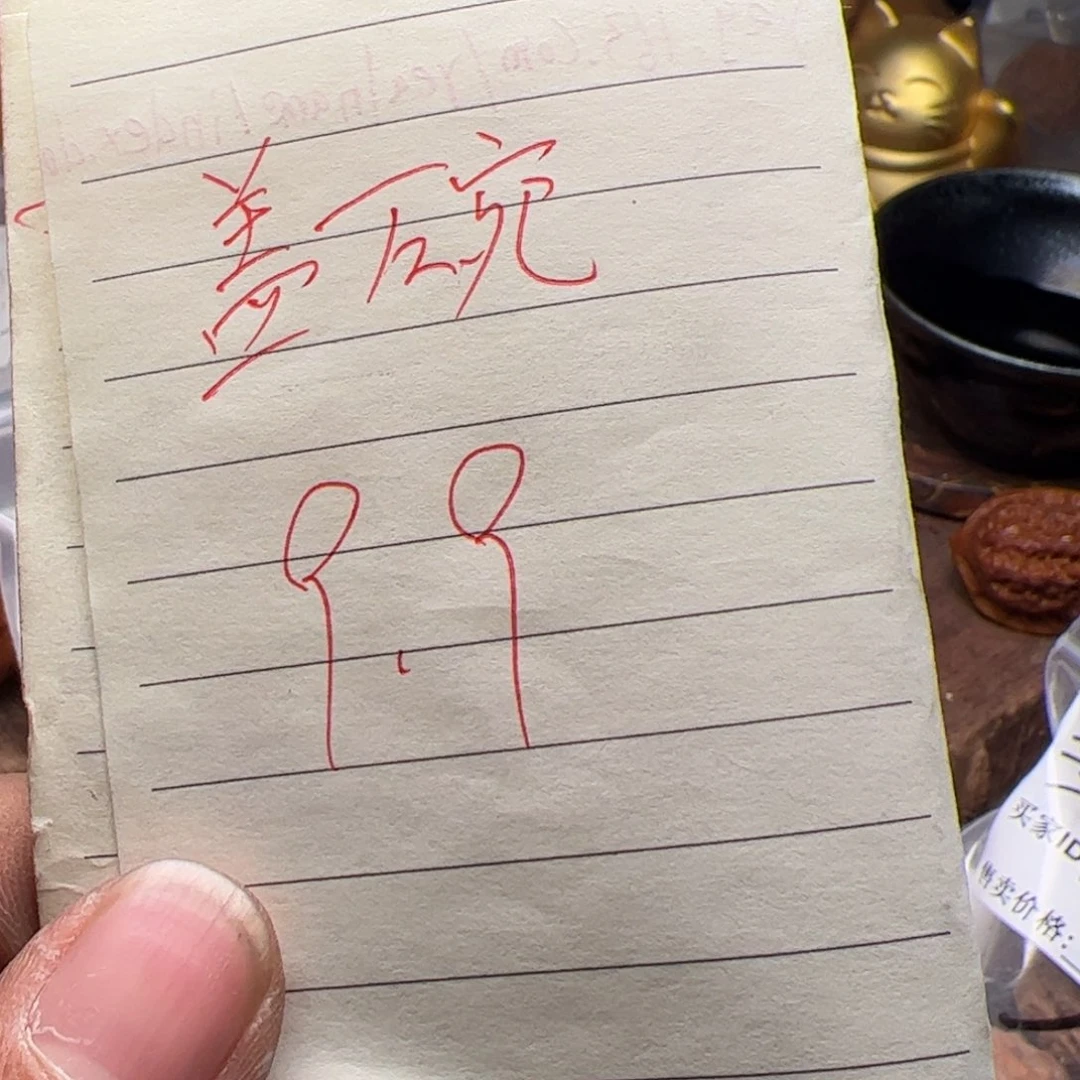 盖碗
9.9
买家ID
售卖价格: